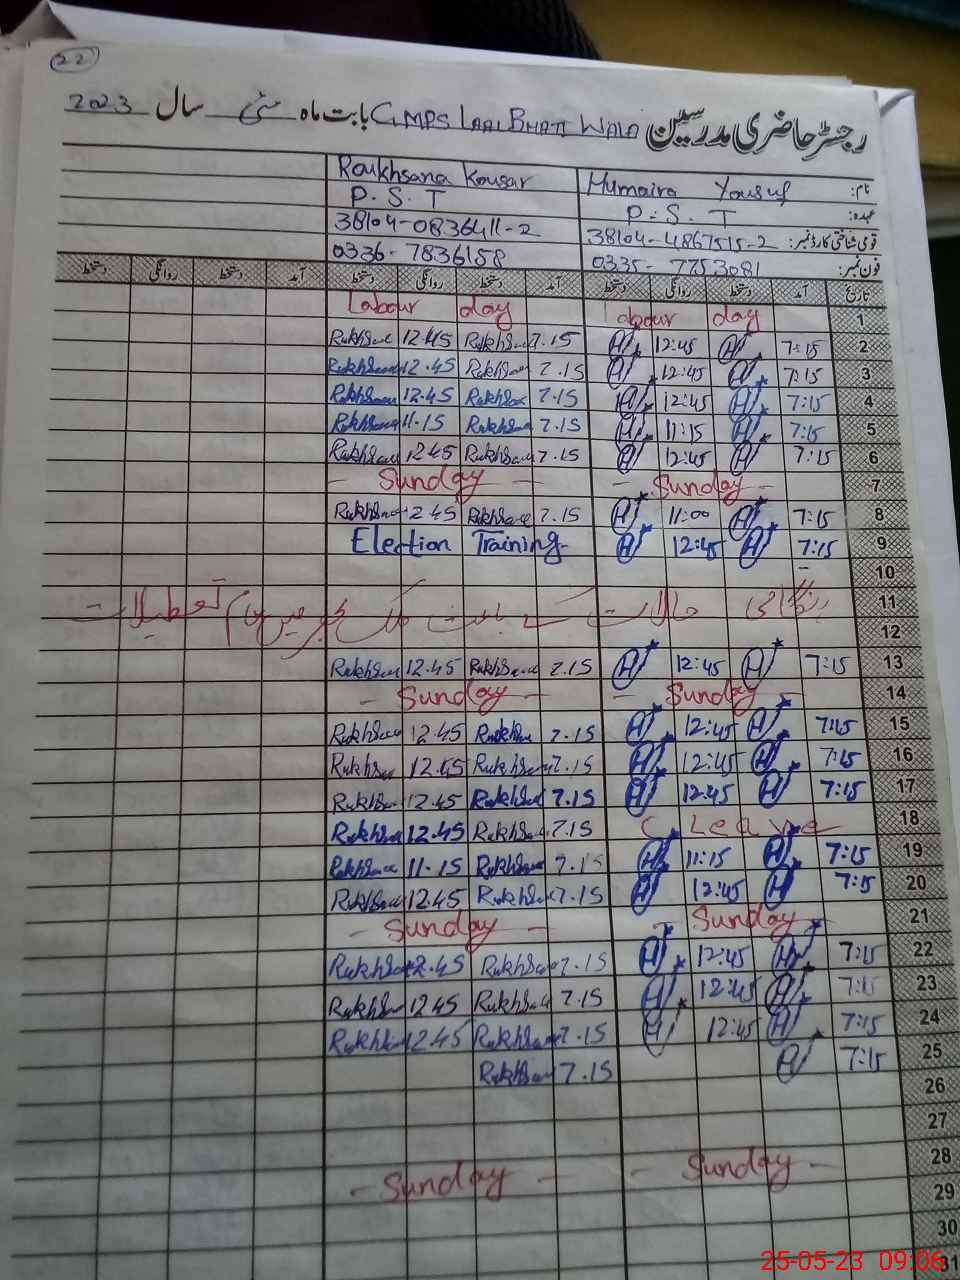 22
رجسٹر حاضری مدرسین GMPS LAAL BHATI WALA بابت ماہ مئی سال 2023
نام: Humaira Yousuf Roukhsana Kousar
عہدہ: P.S.T P.S.T
قومی شناختی کارڈ نمبر: 38104-4867515-2 38104-0836411-2
فون نمبر: 0335-7753081 0336-7836158
تاریخ آمد دستخط روانگی دستخط آمد دستخط روانگی دستخط آمد دستخط روانگی دستخط
1 Labour day Labour day
2 7:15 H 12:45 H 7.15 Rukhsana 12.45 Rukhsana
3 7:15 H 12:45 H 7.15 Rukhsana 12.45 Rukhsana
4 7:15 H 12:45 H 7.15 Rukhsana 12.45 Rukhsana
5 7:15 H 11:15 H 7.15 Rukhsana 11.15 Rukhsana
6 7:15 H 12:45 H 7.15 Rukhsana 1245 Rukhsana
7 - Sunday - - Sunday -
8 7:15 H 11:00 H 7.15 Rukhsana 2.45 Rukhsana
9 7:15 H 12:45 H Election Training
10
11 ہنگامی حالات کے باعث ملک بھر میں عام تعطیلات
12
13 7:15 H 12:45 H 7.15 Rukhsana 12.45 Rukhsana
14 - Sunday - - Sunday -
15 7:15 H 12:45 H 7.15 Rukhsana 12.45 Rukhsana
16 7:15 H 12:45 H 7.15 Rukhsana 12.45 Rukhsana
17 7:15 H 12:45 H 7.15 Rukhsana 12.45 Rukhsana
18 C Leave 7.15 Rukhsana 12.45 Rukhsana
19 7:15 H 11:15 H 7.15 Rukhsana 11.15 Rukhsana
20 7:15 H 12:45 H 7.15 Rukhsana 12.45 Rukhsana
21 - Sunday - - Sunday -
22 7:15 H 12:45 H 7.15 Rukhsana 2.45 Rukhsana
23 7:15 H 12:45 H 7.15 Rukhsana 12.45 Rukhsana
24 7:15 H 12:45 H 7.15 Rukhsana 12.45 Rukhsana
25 7:15 H 7.15 Rukhsana
26
27
28 - Sunday - - Sunday -
29
30
31
25-05-23 09:06